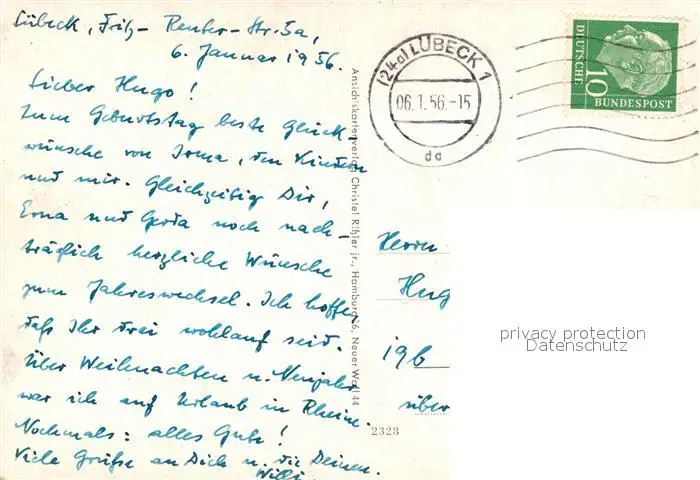 Lübeck, Fritz-Reuter-Str. 5a,
6. Januar 1956.
Lieber Hugo!
Zum Geburtstag beste Glück-
wünsche von Irma, den Kindern
und mir. Gleichzeitig Dir,
Erna und Gerda noch nach-
träglich herzliche Wünsche
zum Jahreswechsel. Ich hoffe,
daß Ihr drei wohlauf seid.
Über Weihnachten u. Neujahr
war ich auf Urlaub in Rheine.
Nochmals: alles Gute!
Viele Grüße an Dich u. die Deinen.
Willi
Ansichtskartenverlag Christel Rißler jr., Hamburg 36, Neuer Wall 44
2328
(24a) LÜBECK 1
06.1.56.-15
da
DEUTSCHE
10
BUNDESPOST
Herrn
Hug
19b
über
privacy protection
Datenschutz